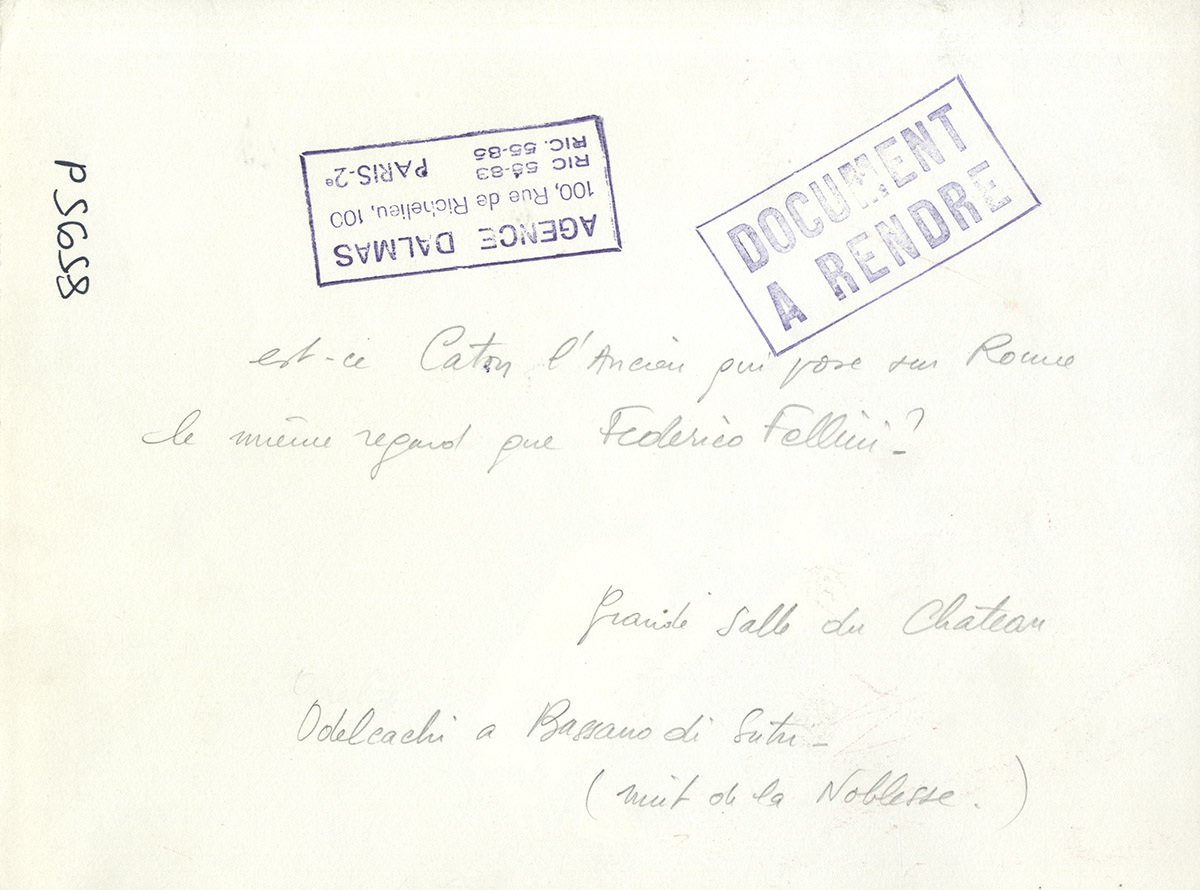 P5658
AGENCE DALMAS
100, Rue de Richelieu, 100
RIC 55-83
RIC. 55-85
PARIS-2e
DOCUMENT
A RENDRE
est-ce Caton l'Ancien qui pose sur Rome
le même regard que Federico Fellini?_
Grande Salle du Chateau
Odelcachi a Bassano di Sutri_
(nuit de la Noblesse.)